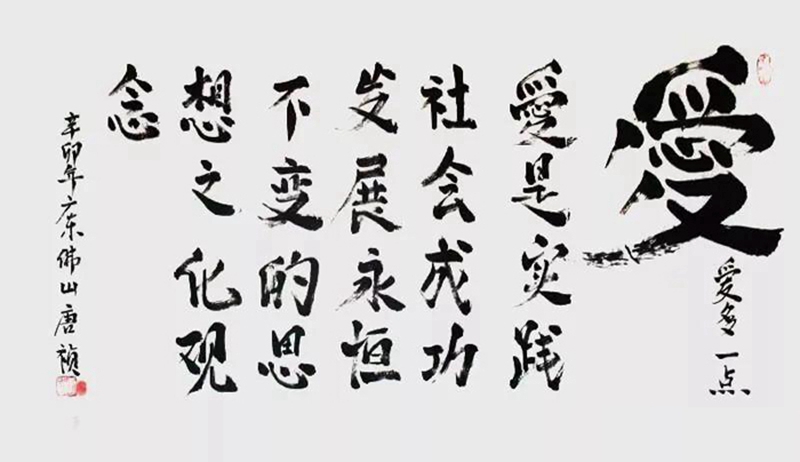 愛
愛多一点
愛是实践
社会成功
发展永恒
不变的思
想之化观
念
辛卯年广东佛山唐祯